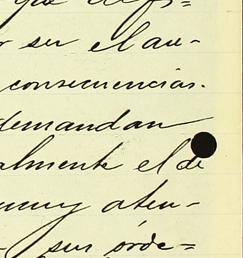 que
r ser el au-
consecuencias.
demandan
almente el de
muy aten-
sus órde=